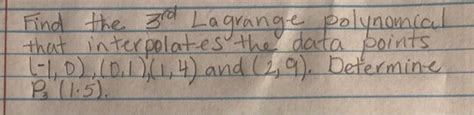 Find the 3rd Lagrange polynomial
that interpolates the data points
(-1,0),(0,1),(1,4) and (2,9). Determine
P3 (1.5).